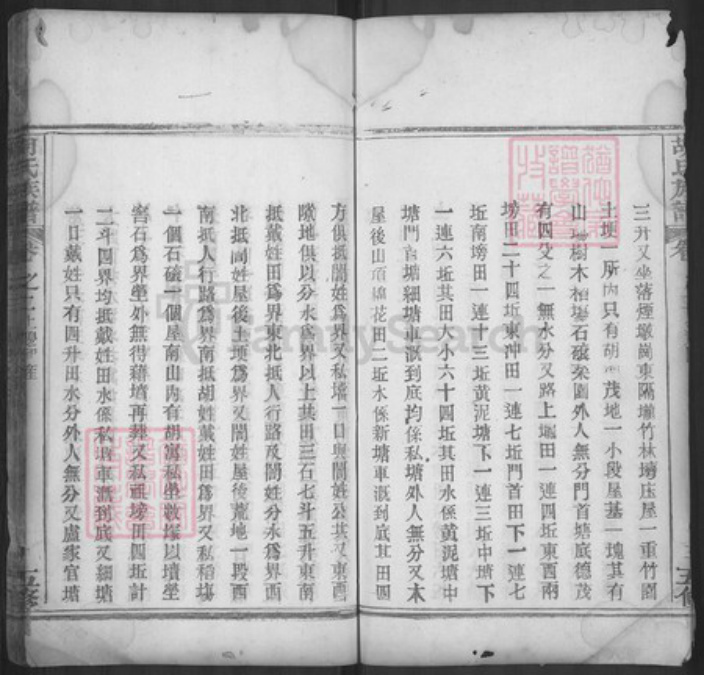 三升又坐落煙墩崗東隔壠竹林塆庄屋一重竹園
土垻一所內只有胡茂地一小段屋基一塊其有
山塲樹木柏塲石磙菜園外人無分門首塘底德茂
有四殳之一無水分又路上塅田一連四坵東西兩
塝田二十四坵東沖田一連七坵門首田下一連七
坵南塝田一連十三坵黃泥塘下一連三坵中塘下
一連六坵其田大小六十四坵其田水係黃泥塘中
塘門首塘細塘車漑到底均係私塘外人無分又木
屋後山頂棉花田二坵水係新塘車漑到底其田四
方俱抵閻姓為界又私塲一口與閻姓公共又東西
隂地俱以分水為界以上共田三石七斗五升東南
抵戴姓田為界東北抵人行路及閻姓分水為界西
北抵閻姓屋後土垻為界又閻姓屋後荒地一段西
南抵人行路為界南抵胡姓戴姓田為界又私稻塲
一個石磙一個屋南山內有胡寓私塋數塚以墳塋
窖石為界塋外無得藉墳再葬又私垇塝田四坵計
二斗四界均抵戴姓田水係私塘車漑到底又細塘
一口戴姓只有四升田水分外人無分又盧家官塘
胡氏族譜
卷
五修